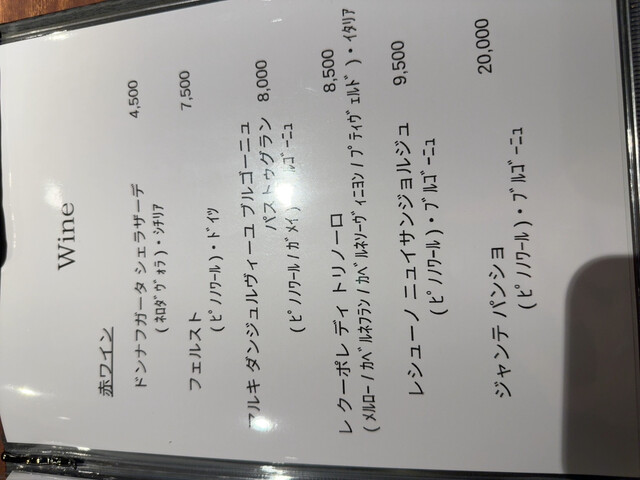 Wine
赤ワイン
ドンナフガータ シェラザーデ 4,500
(ﾈﾛﾀﾞｳﾞｫﾗ)・ｼﾁﾘｱ
フェルスト 7,500
(ﾋﾟﾉﾉﾜｰﾙ)・ﾄﾞｲﾂ
マルキ ダンジェルヴィーユ ブルゴーニュ
パストゥグラン 8,000
(ﾋﾟﾉﾉﾜｰﾙ/ｶﾞﾒｲ) ﾙｺﾞｰﾆｭ
レ クーポレ ディ トリノーロ 8,500
(ﾒﾙﾛｰ/ｶﾍﾞﾙﾈﾌﾗﾝ/ｶﾍﾞﾙﾈｿｰｳﾞｨﾆﾖﾝ/ﾌﾟﾃｨｳﾞｪﾙﾄﾞ)・ｲﾀﾘｱ
レシューノ ニュイサンジョルジュ 9,500
(ﾋﾟﾉﾉﾜｰﾙ)・ﾌﾞﾙｺﾞｰﾆｭ
ジャンテ パンショ 20,000
(ﾋﾟﾉﾉﾜｰﾙ)・ﾌﾞﾙｺﾞｰﾆｭ